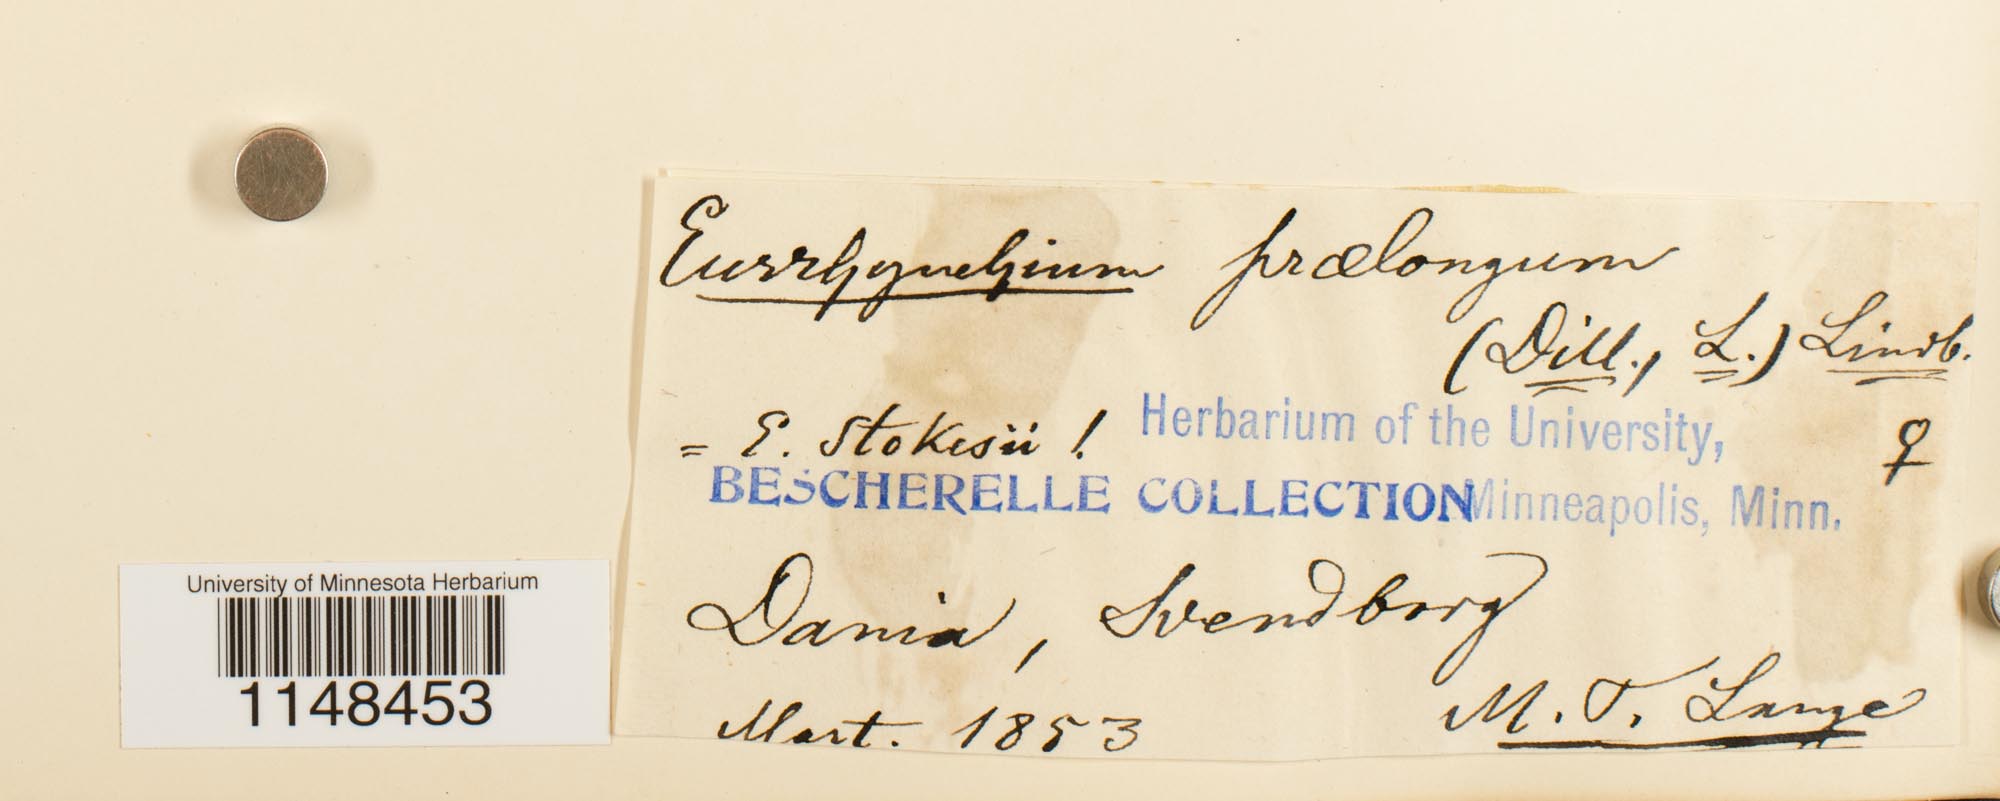 Eurrhynchium prælongum
(Dill., L.) Lindb.
= E. Stokesii !
♀
Herbarium of the University,
BESCHERELLE COLLECTION
Minneapolis, Minn.
Dania, Svendborg
Mart. 1853
M. T. Lange
University of Minnesota Herbarium
1148453